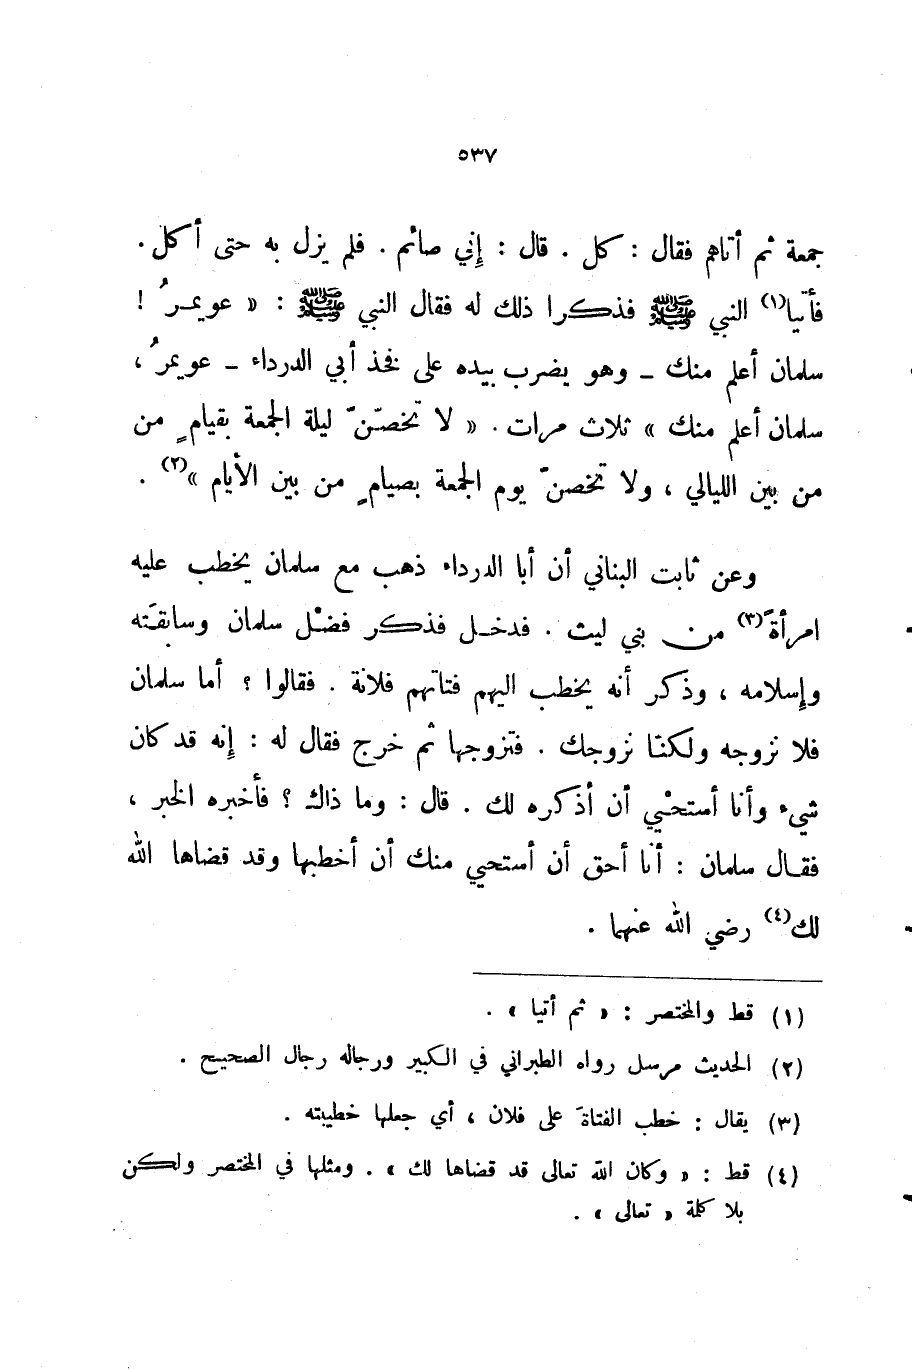 ٥٣٧
جمعة ثم أتاهم فقال : كل . قال : إني صائم . فلم يزل به حتى أكل .
فأتيا(١) النبي ﷺ فذكرا ذلك له فقال النبي ﷺ : « عويمرُ !
سلمان أعلم منك ــ وهو يضرب بيده على فخذ أبي الدرداء ــ عويمرُ ،
سلمان أعلم منك » ثلاث مرات . « لا تخصّنّ ليلة الجمعة بقيامٍ من
من بين الليالي ، ولا تخصنّ يوم الجمعة بصيامٍ من بين الأيام »(٢) .
وعن ثابت البناني أن أبا الدرداء ذهب مع سلمان يخطب عليه
امرأةً(٣) من بني ليث . فدخل فذكر فضْل سلمان وسابقَته
وإسلامه ، وذكر أنه يخطب اليهم فتاتهم فلانة . فقالوا ؟ أما سلمان
فلا نزوجه ولكنّا نزوجك . فتزوجها ثم خرج فقال له : إنه قد كان
شيء وأنا أستحْيي أن أذكره لك . قال : وما ذاك ؟ فأخبره الخبر ،
فقال سلمان : أنا أحق أن أستحيي منك أن أخطبها وقد قضاها الله
لك(٤) رضي الله عنهما .
(١) قط والمختصر : « ثم أتيا » .
(٢) الحديث مرسل رواه الطبراني في الكبير ورجاله رجال الصحيح .
(٣) يقال : خطب الفتاةَ على فلان ، أي جعلها خطيبته .
(٤) قط : « وكان الله تعالى قد قضاها لك » . ومثلها في المختصر ولكن
بلا كلمة « تعالى » .